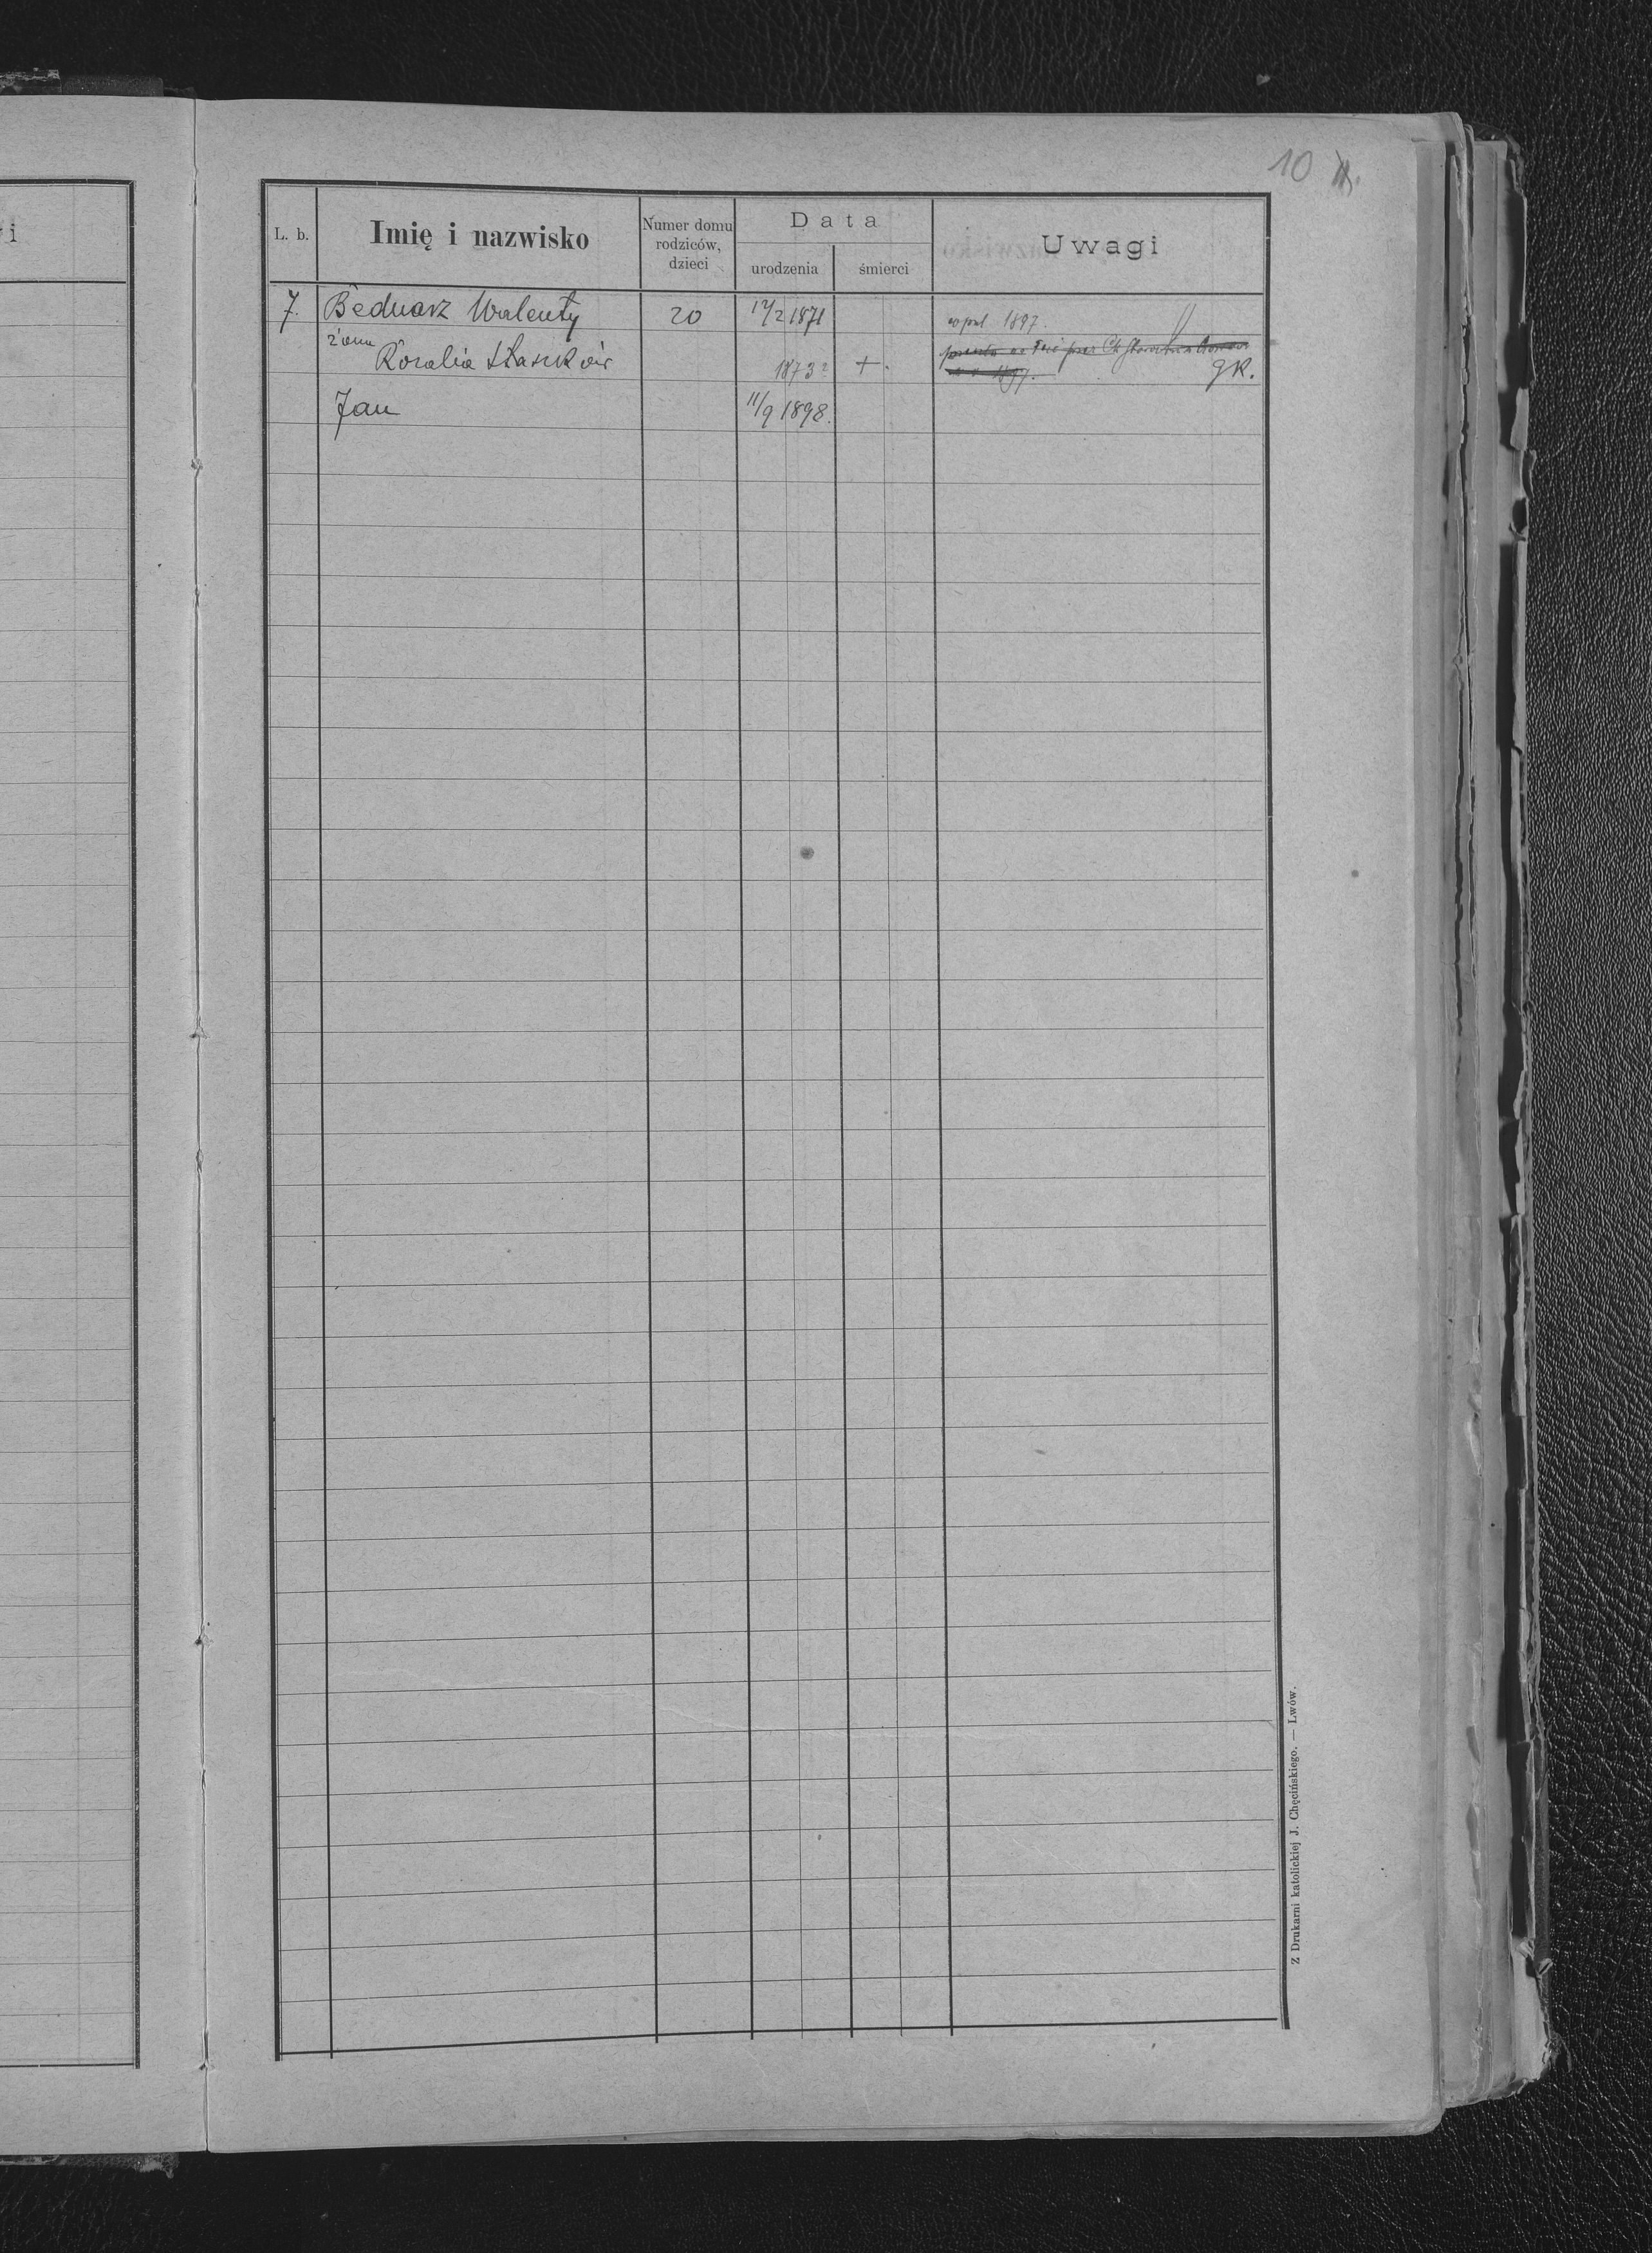 10
i
L. b.
Imię i nazwisko
Numer domu rodziców, dzieci
Data
urodzenia
śmierci
Uwagi
7. Bednarz Walenty 20 17/2 1871 copul 1897.
żona Rozalia 1873? +. gR.
Jan 11/9 1898.
Z Drukarni katolickiej J. Chęcińskiego. — Lwów.